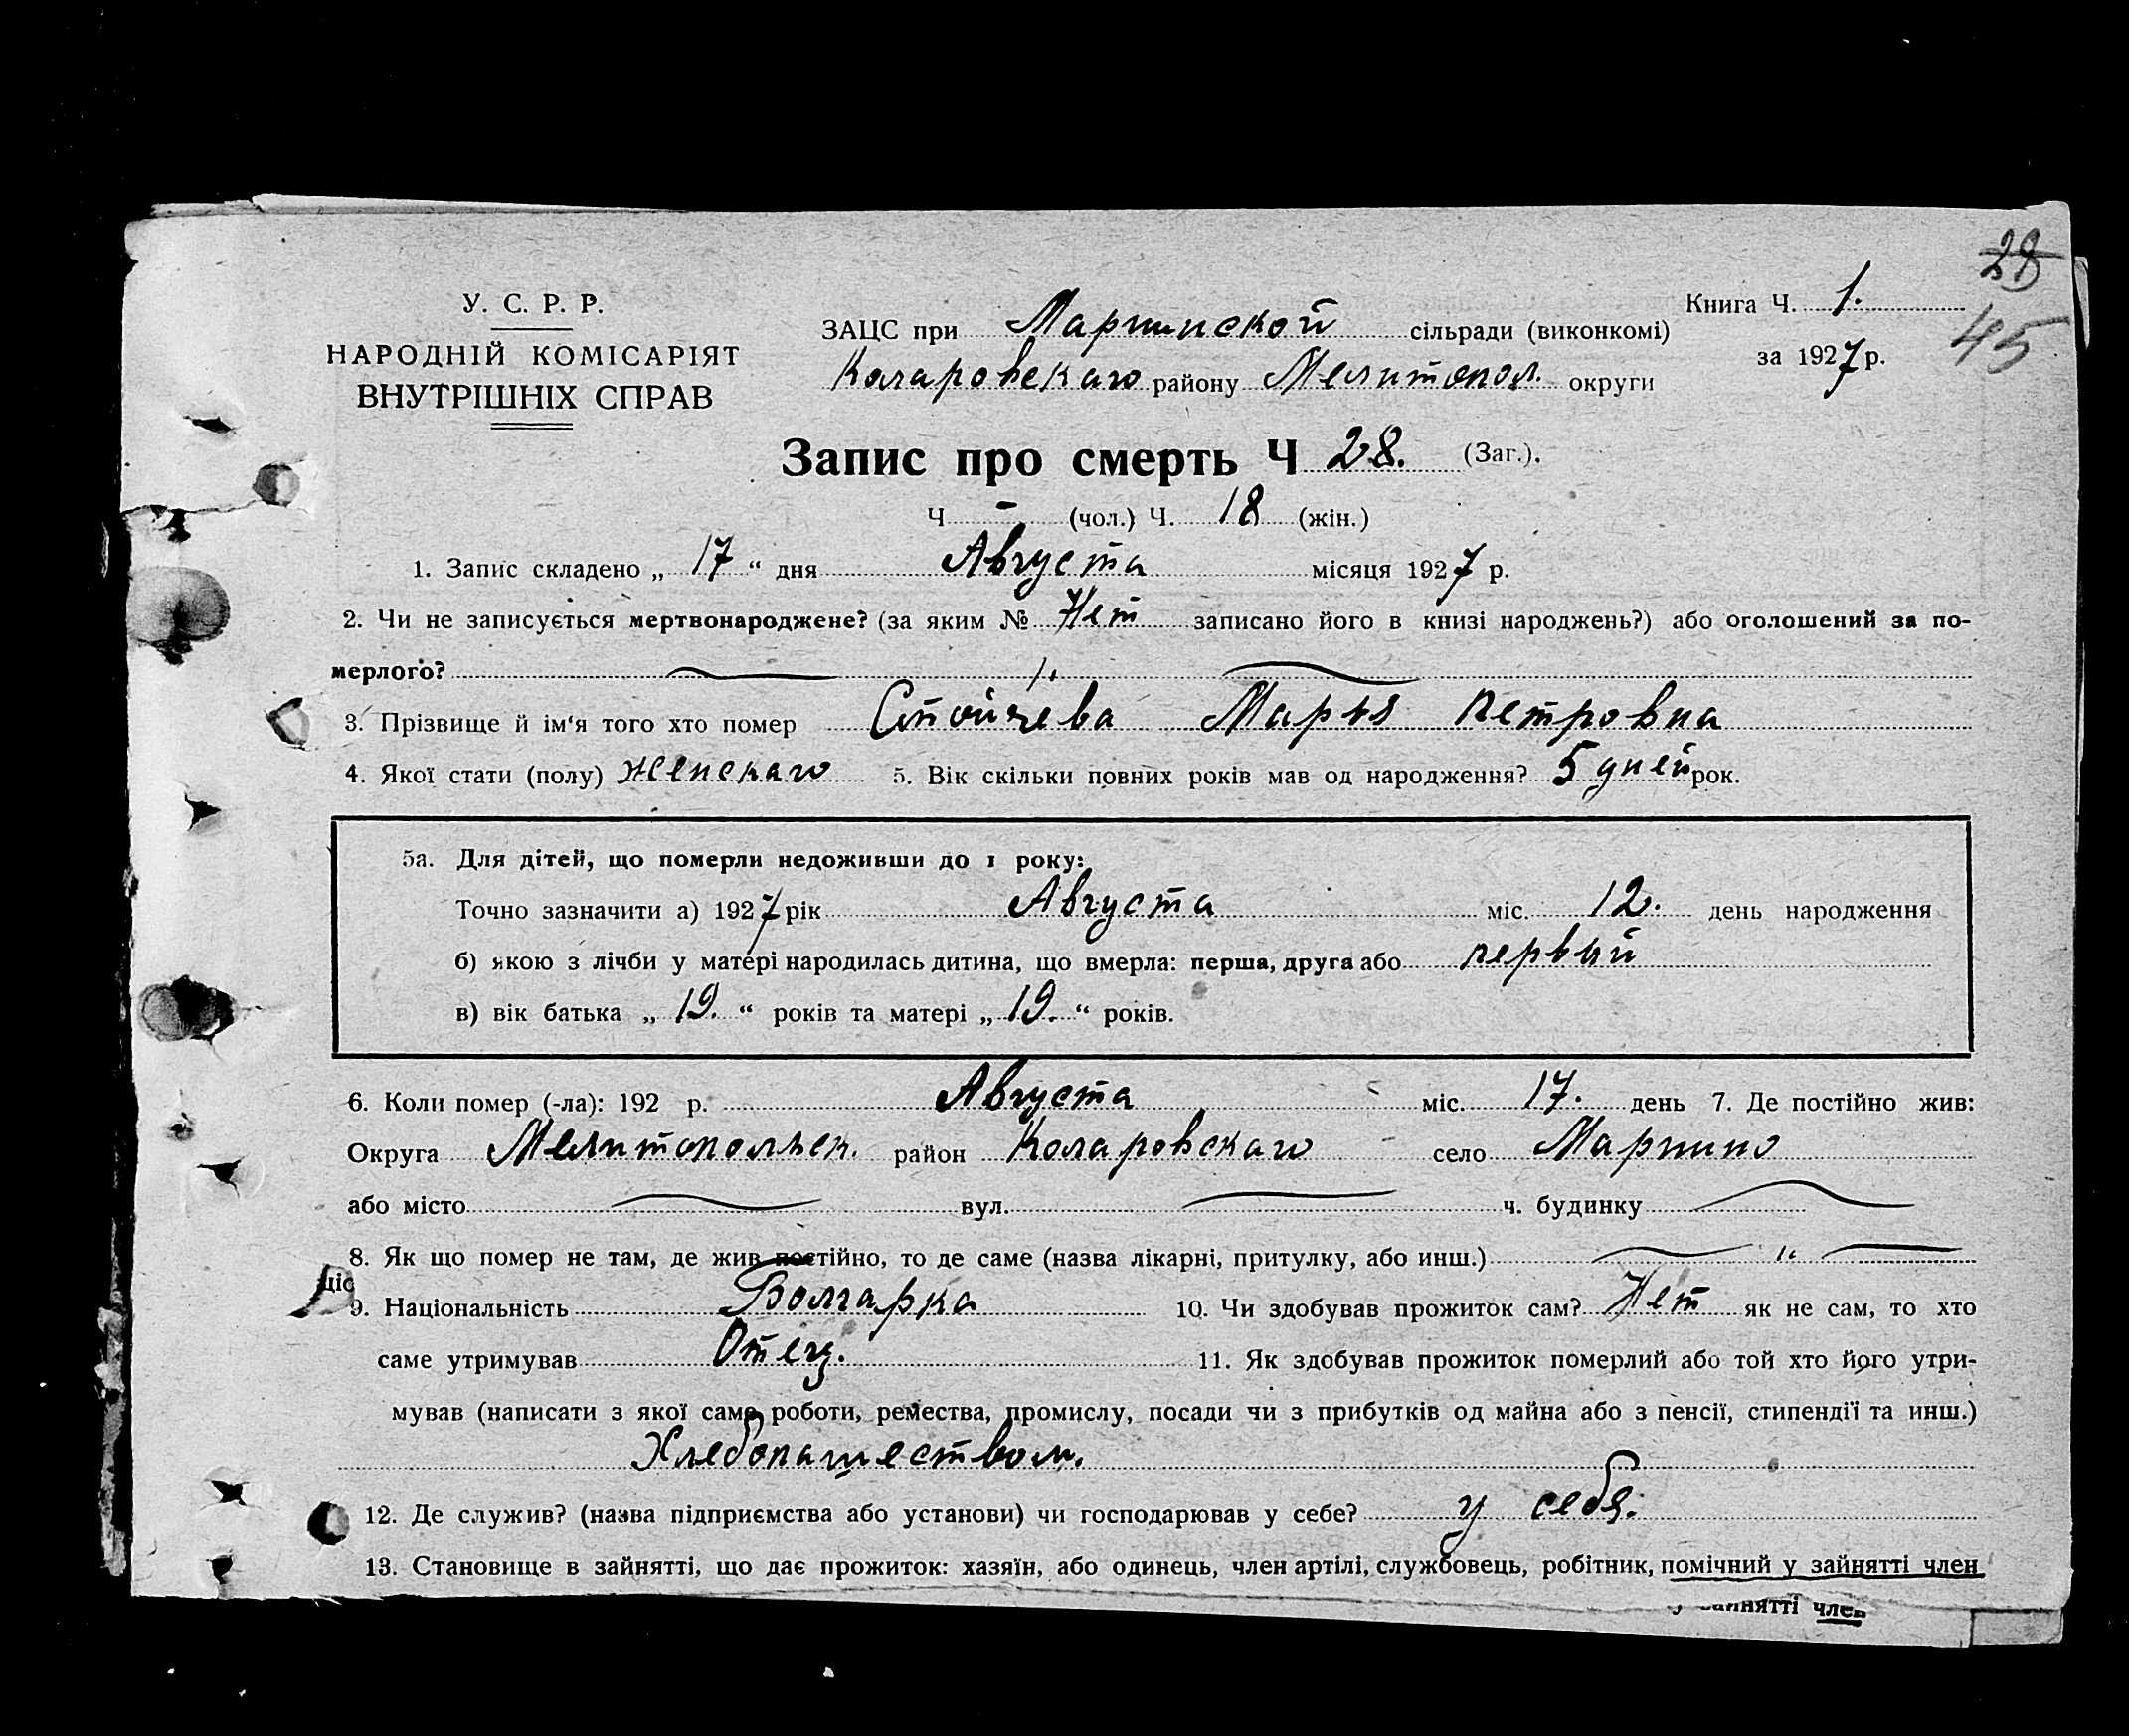 28
45
У. С. Р. Р.
НАРОДНІЙ КОМІСАРІЯТ
ВНУТРІШНІХ СПРАВ
ЗАЦС при Маринской сільради (виконкомі)
Коларовскаго району Мелитопол. округи
Книга Ч. 1.
за 1927 р.
Запис про смерть Ч 28. (Заг.).
Ч - (чол.) Ч. 18 (жін.)
1. Запис складено „ 17 “ дня Августа місяця 1927 р.
2. Чи не записується мертвонароджене? (за яким № Нет записано його в книзі народжень?) або оголошений за по-
мерлого?
3. Прізвище й ім‘я того хто помер Стойчева Марья Петровна
4. Якої стати (полу) женскаго 5. Вік скільки повних років мав од народження? 5 дней рок.
5а. Для дітей, що померли недоживши до 1 року:
Точно зазначити а) 1927 рік Августа міс. 12. день народження
б) якою з лічби у матері народилась дитина, що вмерла: перша, друга або первый
в) вік батька „ 19. “ років та матері „ 19. “ років.
6. Коли помер (-ла): 192 р. Августа міс. 17. день 7. Де постійно жив:
Округа Мелитопольск. район Коларовскаго село Марино
або місто вул. ч. будинку
8. Як що помер не там, де жив постійно, то де саме (назва лікарні, притулку, або инш.) "
9. Національність Болгарка 10. Чи здобував прожиток сам? Нет як не сам, то хто
саме утримував Отец. 11. Як здобував прожиток померлий або той хто його утри-
мував (написати з якої саме роботи, ремества, промислу, посади чи з прибутків од майна або з пенсії, стипендії та инш.)
Хлебопашеством.
12. Де служив? (назва підприємства або установи) чи господарював у себе? у себя.
13. Становище в зайнятті, що дає прожиток: хазяїн, або одинець, член артілі, службовець, робітник, помічний у зайнятті член
у зайнятті член